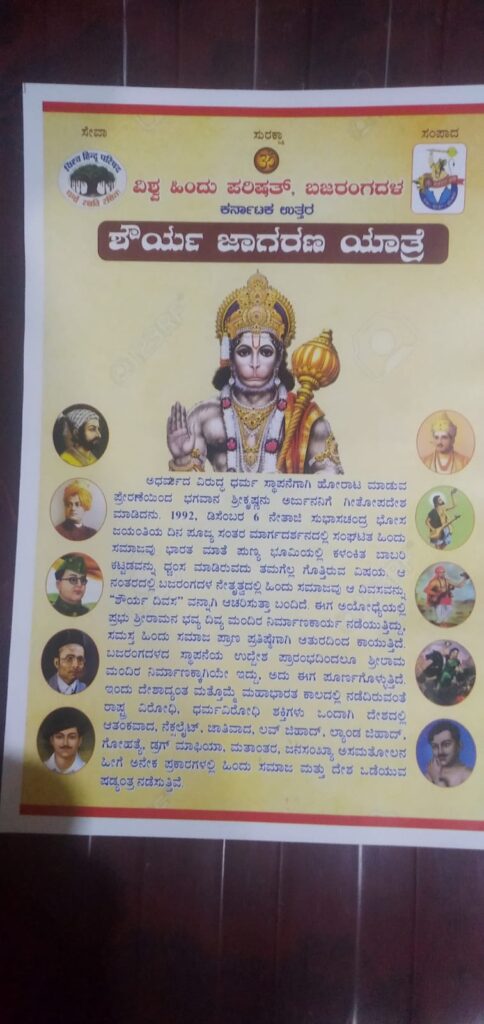 ಸೇವಾ ಸುರಕ್ಷಾ ಸಂಪಾದ
ವಿಶ್ವ ಹಿಂದು ಪರಿಷತ್, ಬಜರಂಗದಳ
ಕರ್ನಾಟಕ ಉತ್ತರ
ಶೌರ್ಯ ಜಾಗರಣ ಯಾತ್ರೆ
ಅಧರ್ಮದ ವಿರುದ್ಧ ಧರ್ಮ ಸ್ಥಾಪನೆಗಾಗಿ ಹೋರಾಟ ಮಾಡುವ
ಪ್ರೇರಣೆಯಿಂದ ಭಗವಾನ ಶ್ರೀಕೃಷ್ಣನು ಅರ್ಜುನನಿಗೆ ಗೀತೋಪದೇಶ
ಮಾಡಿದನು. 1992, ಡಿಸೆಂಬರ 6 ನೇತಾಜಿ ಸುಭಾಸಚಂದ್ರ ಭೋಸ
ಜಯಂತಿಯ ದಿನ ಪೂಜ್ಯ ಸಂತರ ಮಾರ್ಗದರ್ಶನದಲ್ಲಿ ಸಂಘಟಿತ ಹಿಂದು
ಸಮಾಜವು ಭಾರತ ಮಾತೆ ಪುಣ್ಯ ಭೂಮಿಯಲ್ಲಿ ಕಳಂಕಿತ ಬಾಬರಿ
ಕಟ್ಟಡವನ್ನು ಧ್ವಂಸ ಮಾಡಿರುವದು ತಮಗೆಲ್ಲ ಗೊತ್ತಿರುವ ವಿಷಯ. ಆ
ನಂತರದಲ್ಲಿ ಬಜರಂಗದಳ ನೇತೃತ್ವದಲ್ಲಿ ಹಿಂದು ಸಮಾಜವು ಆ ದಿವಸವನ್ನು
"ಶೌರ್ಯ ದಿವಸ" ವನ್ನಾಗಿ ಆಚರಿಸುತ್ತಾ ಬಂದಿದೆ. ಈಗ ಅಯೋಧ್ಯೆಯಲ್ಲಿ
ಪ್ರಭು ಶ್ರೀರಾಮನ ಭವ್ಯ ದಿವ್ಯ ಮಂದಿರ ನಿರ್ಮಾಣಕಾರ್ಯ ನಡೆಯುತ್ತಿದ್ದು,
ಸಮಸ್ತ ಹಿಂದು ಸಮಾಜ ಪ್ರಾಣ ಪ್ರತಿಷ್ಠೆಗಾಗಿ ಆತುರದಿಂದ ಕಾಯುತ್ತಿದೆ.
ಬಜರಂಗದಳದ ಸ್ಥಾಪನೆಯ ಉದ್ದೇಶ ಪ್ರಾರಂಭದಿಂದಲೂ ಶ್ರೀರಾಮ
ಮಂದಿರ ನಿರ್ಮಾಣಕ್ಕಾಗಿಯೇ ಇದ್ದು, ಅದು ಈಗ ಪೂರ್ಣಗೊಳ್ಳುತ್ತಿದೆ.
ಇಂದು ದೇಶಾದ್ಯಂತ ಮತ್ತೊಮ್ಮೆ ಮಹಾಭಾರತ ಕಾಲದಲ್ಲಿ ನಡೆದಿರುವಂತೆ
ರಾಷ್ಟ್ರ ವಿರೋಧಿ, ಧರ್ಮವಿರೋಧಿ ಶಕ್ತಿಗಳು ಒಂದಾಗಿ ದೇಶದಲ್ಲಿ
ಆತಂಕವಾದ, ನೆಕ್ಸಲೈಟ್, ಜಾತಿವಾದ, ಲವ್ ಜಿಹಾದ್, ಲ್ಯಾಂಡ ಜಿಹಾದ್,
ಗೋಹತ್ಯೆ, ಡ್ರಗ್ ಮಾಫಿಯಾ, ಮತಾಂತರ, ಜನಸಂಖ್ಯಾ ಅಸಮತೋಲನ
ಹೀಗೆ ಅನೇಕ ಪ್ರಕಾರಗಳಲ್ಲಿ ಹಿಂದು ಸಮಾಜ ಮತ್ತು ದೇಶ ಒಡೆಯುವ
ಷಡ್ಯಂತ್ರ ನಡೆಸುತ್ತಿವೆ.